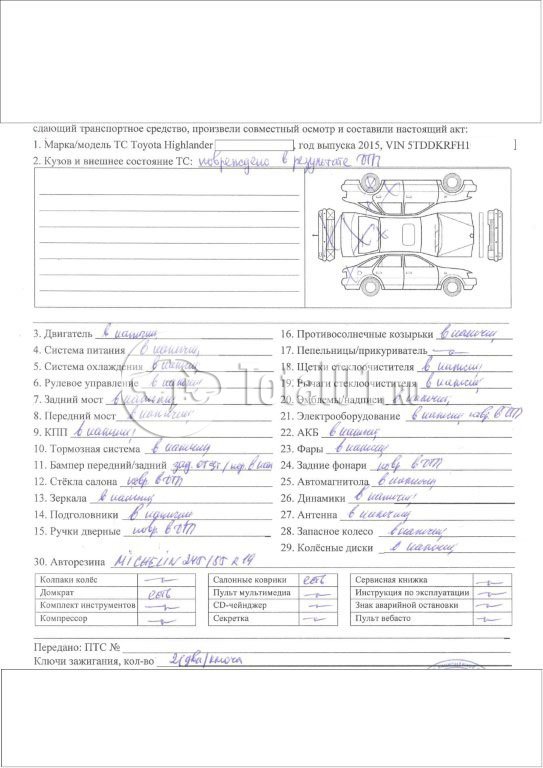 сдающий транспортное средство, произвели совместный осмотр и составили настоящий акт:
1. Марка/модель ТС Toyota Highlander , год выпуска 2015, VIN 5TDDKRFH1 ]
2. Кузов и внешнее состояние ТС: повреждено в результате ДТП
3. Двигатель в наличии
4. Система питания в наличии
5. Система охлаждения в наличии
6. Рулевое управление в наличии
7. Задний мост в наличии
8. Передний мост в наличии
9. КПП в наличии
10. Тормозная система в наличии
11. Бампер передний/задний зад. отсут / пер. в нал
12. Стёкла салона повр. в ДТП
13. Зеркала в наличии
14. Подголовники в наличии
15. Ручки дверные повр. в ДТП
16. Противосолнечные козырьки в наличии
17. Пепельницы/прикуриватель —
18. Щетки стеклоочистителя в наличии
19. Рычаги стеклоочистителя в наличии
20. Эмблемы/надписи в наличии
21. Электрооборудование в наличии повр. в ДТП
22. АКБ в наличии
23. Фары в наличии
24. Задние фонари повр. в ДТП
25. Автомагнитола в наличии
26. Динамики в наличии
27. Антенна в наличии
28. Запасное колесо в наличии
29. Колёсные диски в наличии
30. Авторезина MICHELIN 245/55 R 19
Колпаки колёс — Салонные коврики есть Сервисная книжка —
Домкрат есть Пульт мультимедиа — Инструкция по эксплуатации —
Комплект инструментов — CD-чейнджер — Знак аварийной остановки —
Компрессор — Секретка — Пульт вебасто —
Передано: ПТС №
Ключи зажигания, кол-во 2 (два) ключа